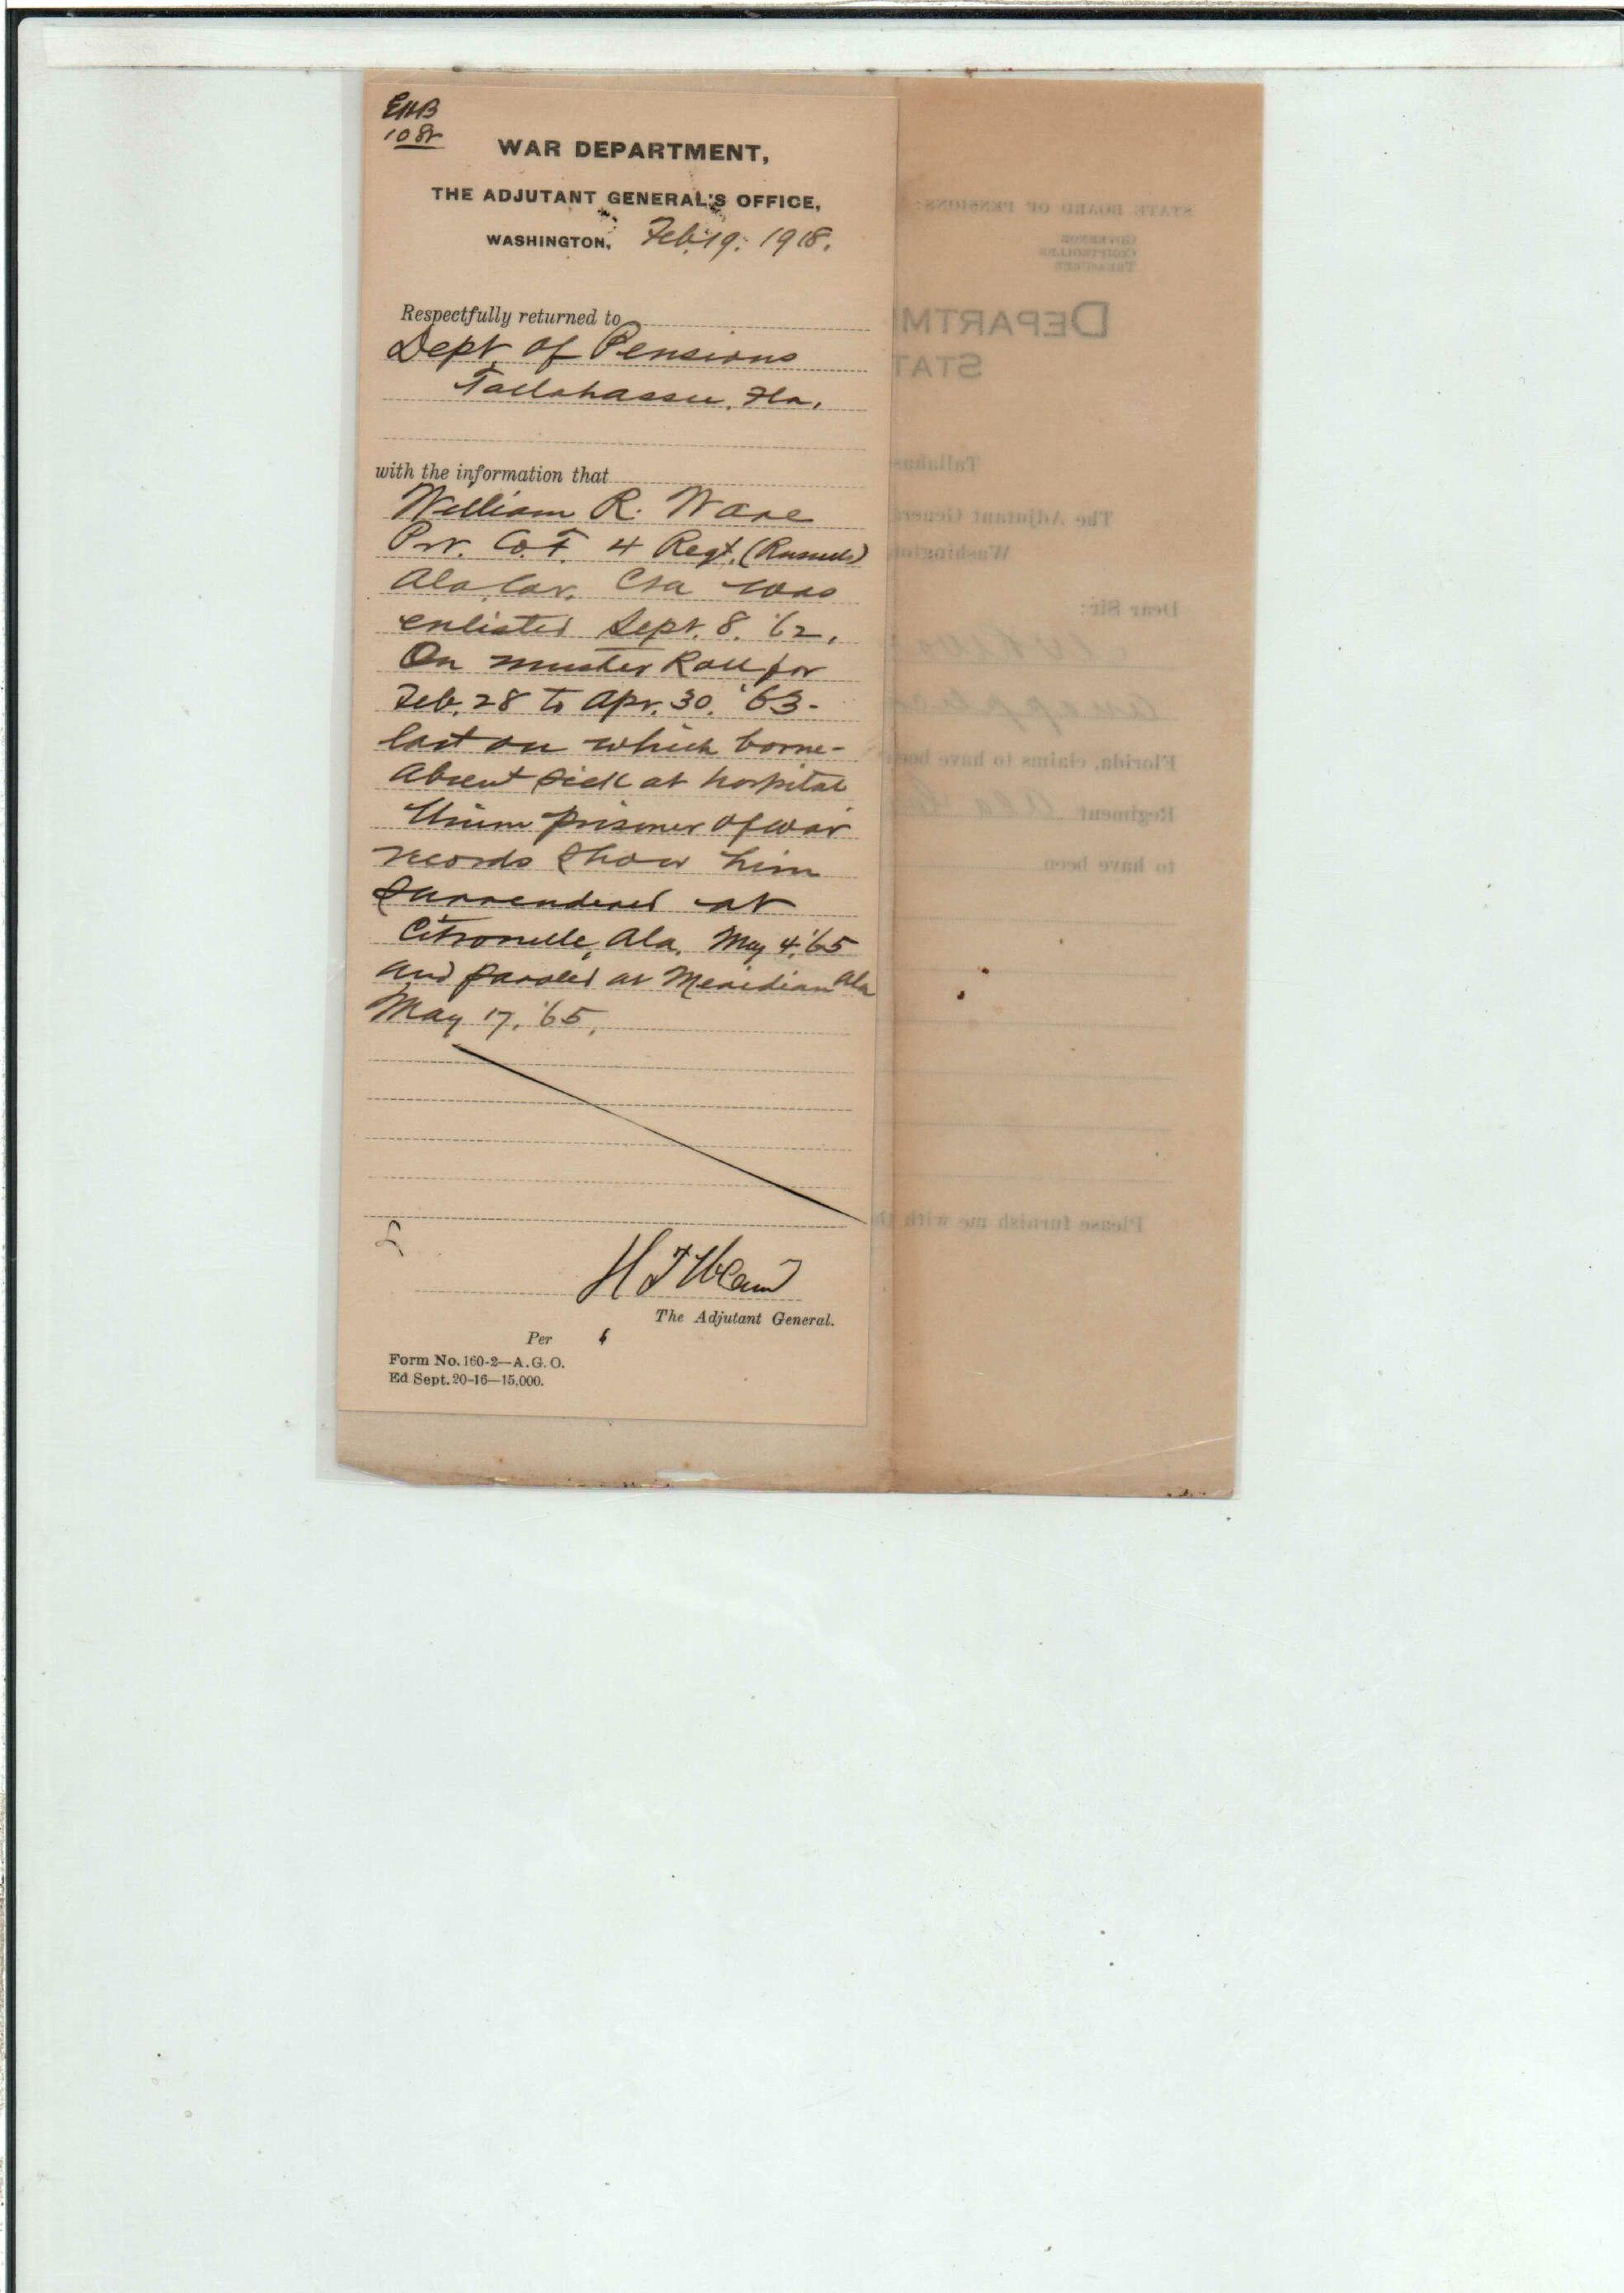 EHB
108
WAR DEPARTMENT,
THE ADJUTANT GENERAL'S OFFICE,
WASHINGTON, Feb. 19. 1918.
Respectfully returned to
Dept. of Pensions
Tallahassee, Fla.
with the information that
William R. Ware
Pvt. Co. F. 4 Regt. (Russell's)
Ala. Cav. CSA was
enlisted Sept. 8. '62.
On muster Roll for
Feb. 28 to Apr. 30. '63-
last on which borne-
absent sick at hospital
Union prisoner of war
records show him
surrendered at
Citronelle, Ala. May 4, '65
and paroled at Meridian Ala
May 17, '65.
The Adjutant General.
Per
Form No. 160-2—A.G.O.
Ed Sept. 20-16—15,000.
STATE BOARD OF PENSIONS:
GOVERNOR
COMPTROLLER
TREASURER
DEPARTM
STAT
Tallahas
The Adjutant Genera
Washington
Dear Sir:
Florida, claims to have been
Regiment Ala C
to have been
Please furnish me with th